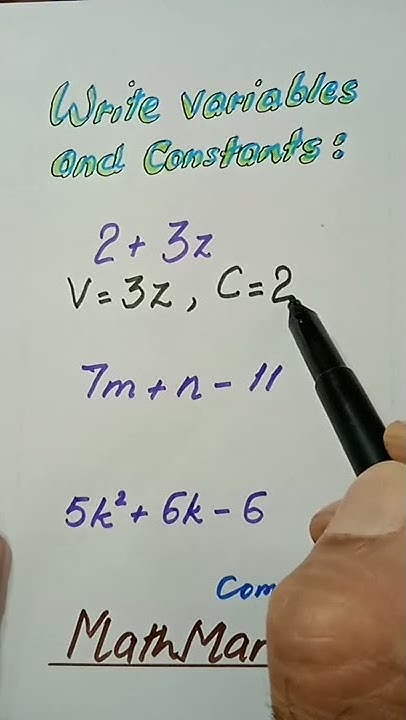 Write variables
and Constants:
2 + 3z
V = 3z, C = 2
7m + n - 11
5k² + 6k - 6